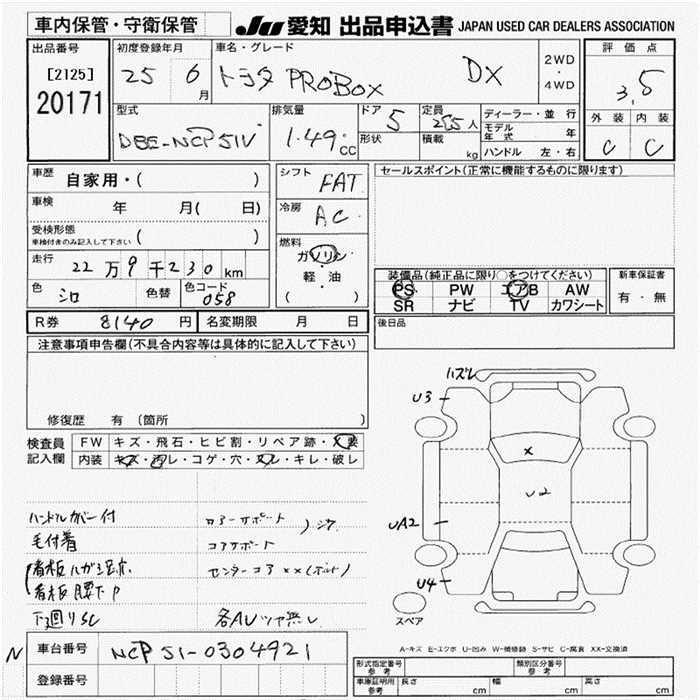 車内保管・守衛保管
JU 愛知 出品申込書 JAPAN USED CAR DEALERS ASSOCIATION
出品番号
[2125]
20171
初度登録年月
25 6月
車名・グレード
トヨタ PROBOX DX
2WD
・
4WD
評価点
3.5
外装 内装
C C
型式
DBE-NCP51V
排気量
1.49 cc
ドア 5
形状
定員 2/5人
積載 kg
ディーラー・並行
モデル年式 年
ハンドル 左・右
車歴
自家用・( )
車検
年 月( 日)
受検形態
車検付きのみ記入して下さい ( )
走行
22万9千230km
色 シロ 色替 色コード 058
シフト FAT
冷房 AC
燃料
ガソリン
軽・油
( )
セールスポイント(正常に機能するものに限ります)
装備品(純正品に限り○をつけてください)
PS PW エアB AW
SR ナビ TV カワシート
新車保証書
有・無
R券 8140円 名変期限 月 日
後日品
注意事項申告欄(不具合内容等は具体的に記入して下さい)
修復歴 有 (箇所 )
検査員記入欄
FW キズ・飛石・ヒビ割・リペア跡・X要
内装 キズ・汚レ・コゲ・穴・スレ・キレ・破レ
ハンドルカバー付
毛付着
看板ハガシ跡
看板 腰下P
下廻りSC
コアサポート
センターコア XX(ボルト)
各AUツヤ無シ
ハズレ
U3
X
U2
UA2
U4
スペア
A-キズ E-エクボ U-凹み W-補修跡 S-サビ C-腐食 XX-交換済
N
車台番号 NCP51-0304921
登録番号
形式指定番号 参考
類別区分番号 参考
車庫証明用 参考 長さ cm 幅 cm 高さ cm